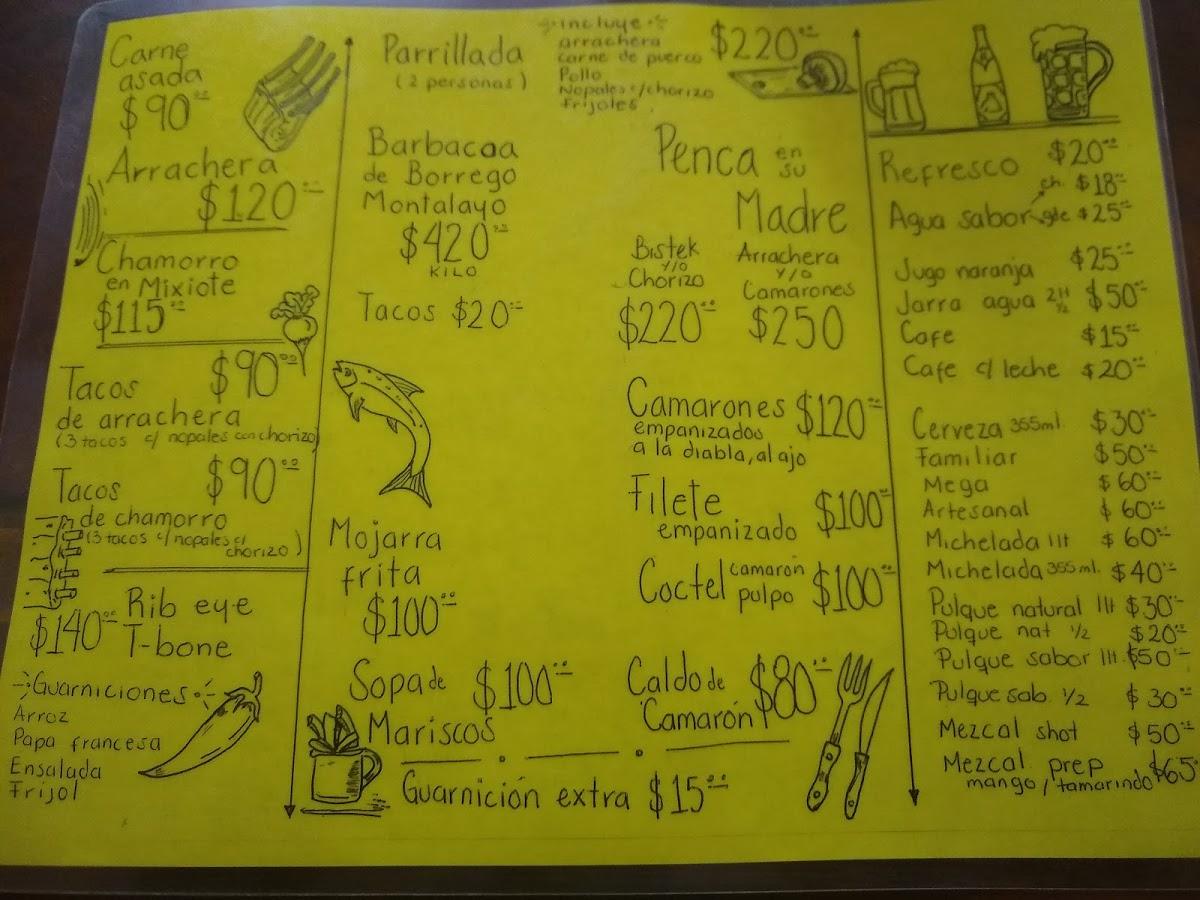 Carne
asada
$90.00
Arrachera
$120.00
Chamorro
en Mixiote
$115.00
Tacos $90.00
de arrachera
(3 tacos c/ nopales con chorizo)
Tacos $90.00
de chamorro
(3 tacos c/ nopales c/
chorizo)
$140.00 Rib eye
T-bone
Guarniciones
Arroz
Papa francesa
Ensalada
Frijol
Parrillada
(2 personas)
incluye
arrachera
carne de puerco
Pollo
Nopales c/chorizo
frijoles
$220.00
Barbacoa
de Borrego
Montalayo
$420.00
KILO
Tacos $20.00
Mojarra
frita
$100.00
Sopa de $100.00
Mariscos
Penca en
su
Madre
Bistek
Y/O
Chorizo
$220.00
Arrachera
Y/O
Camarones
$250
Camarones $120.00
empanizados
a la diabla, al ajo
Filete $100.00
empanizado
Coctel camarón
pulpo $100.00
Caldo de $80.00
Camarón
Guarnición extra $15.00
Refresco $20.00
Agua sabor ch. $18.00
gde $25.00
Jugo naranja $25.00
Jarra agua 2 1/2 lt $50.00
Cafe $15.00
Cafe c/ leche $20.00
Cerveza 355ml. $30.00
Familiar $50.00
Mega $60.00
Artesanal $60.00
Michelada 1lt $60.00
Michelada 355 ml. $40.00
Pulque natural 1lt $30.00
Pulque nat 1/2 $20.00
Pulque sabor 1lt. $50.00
Pulque sab. 1/2 $30.00
Mezcal shot $50.00
Mezcal prep $65.00
mango / tamarindo